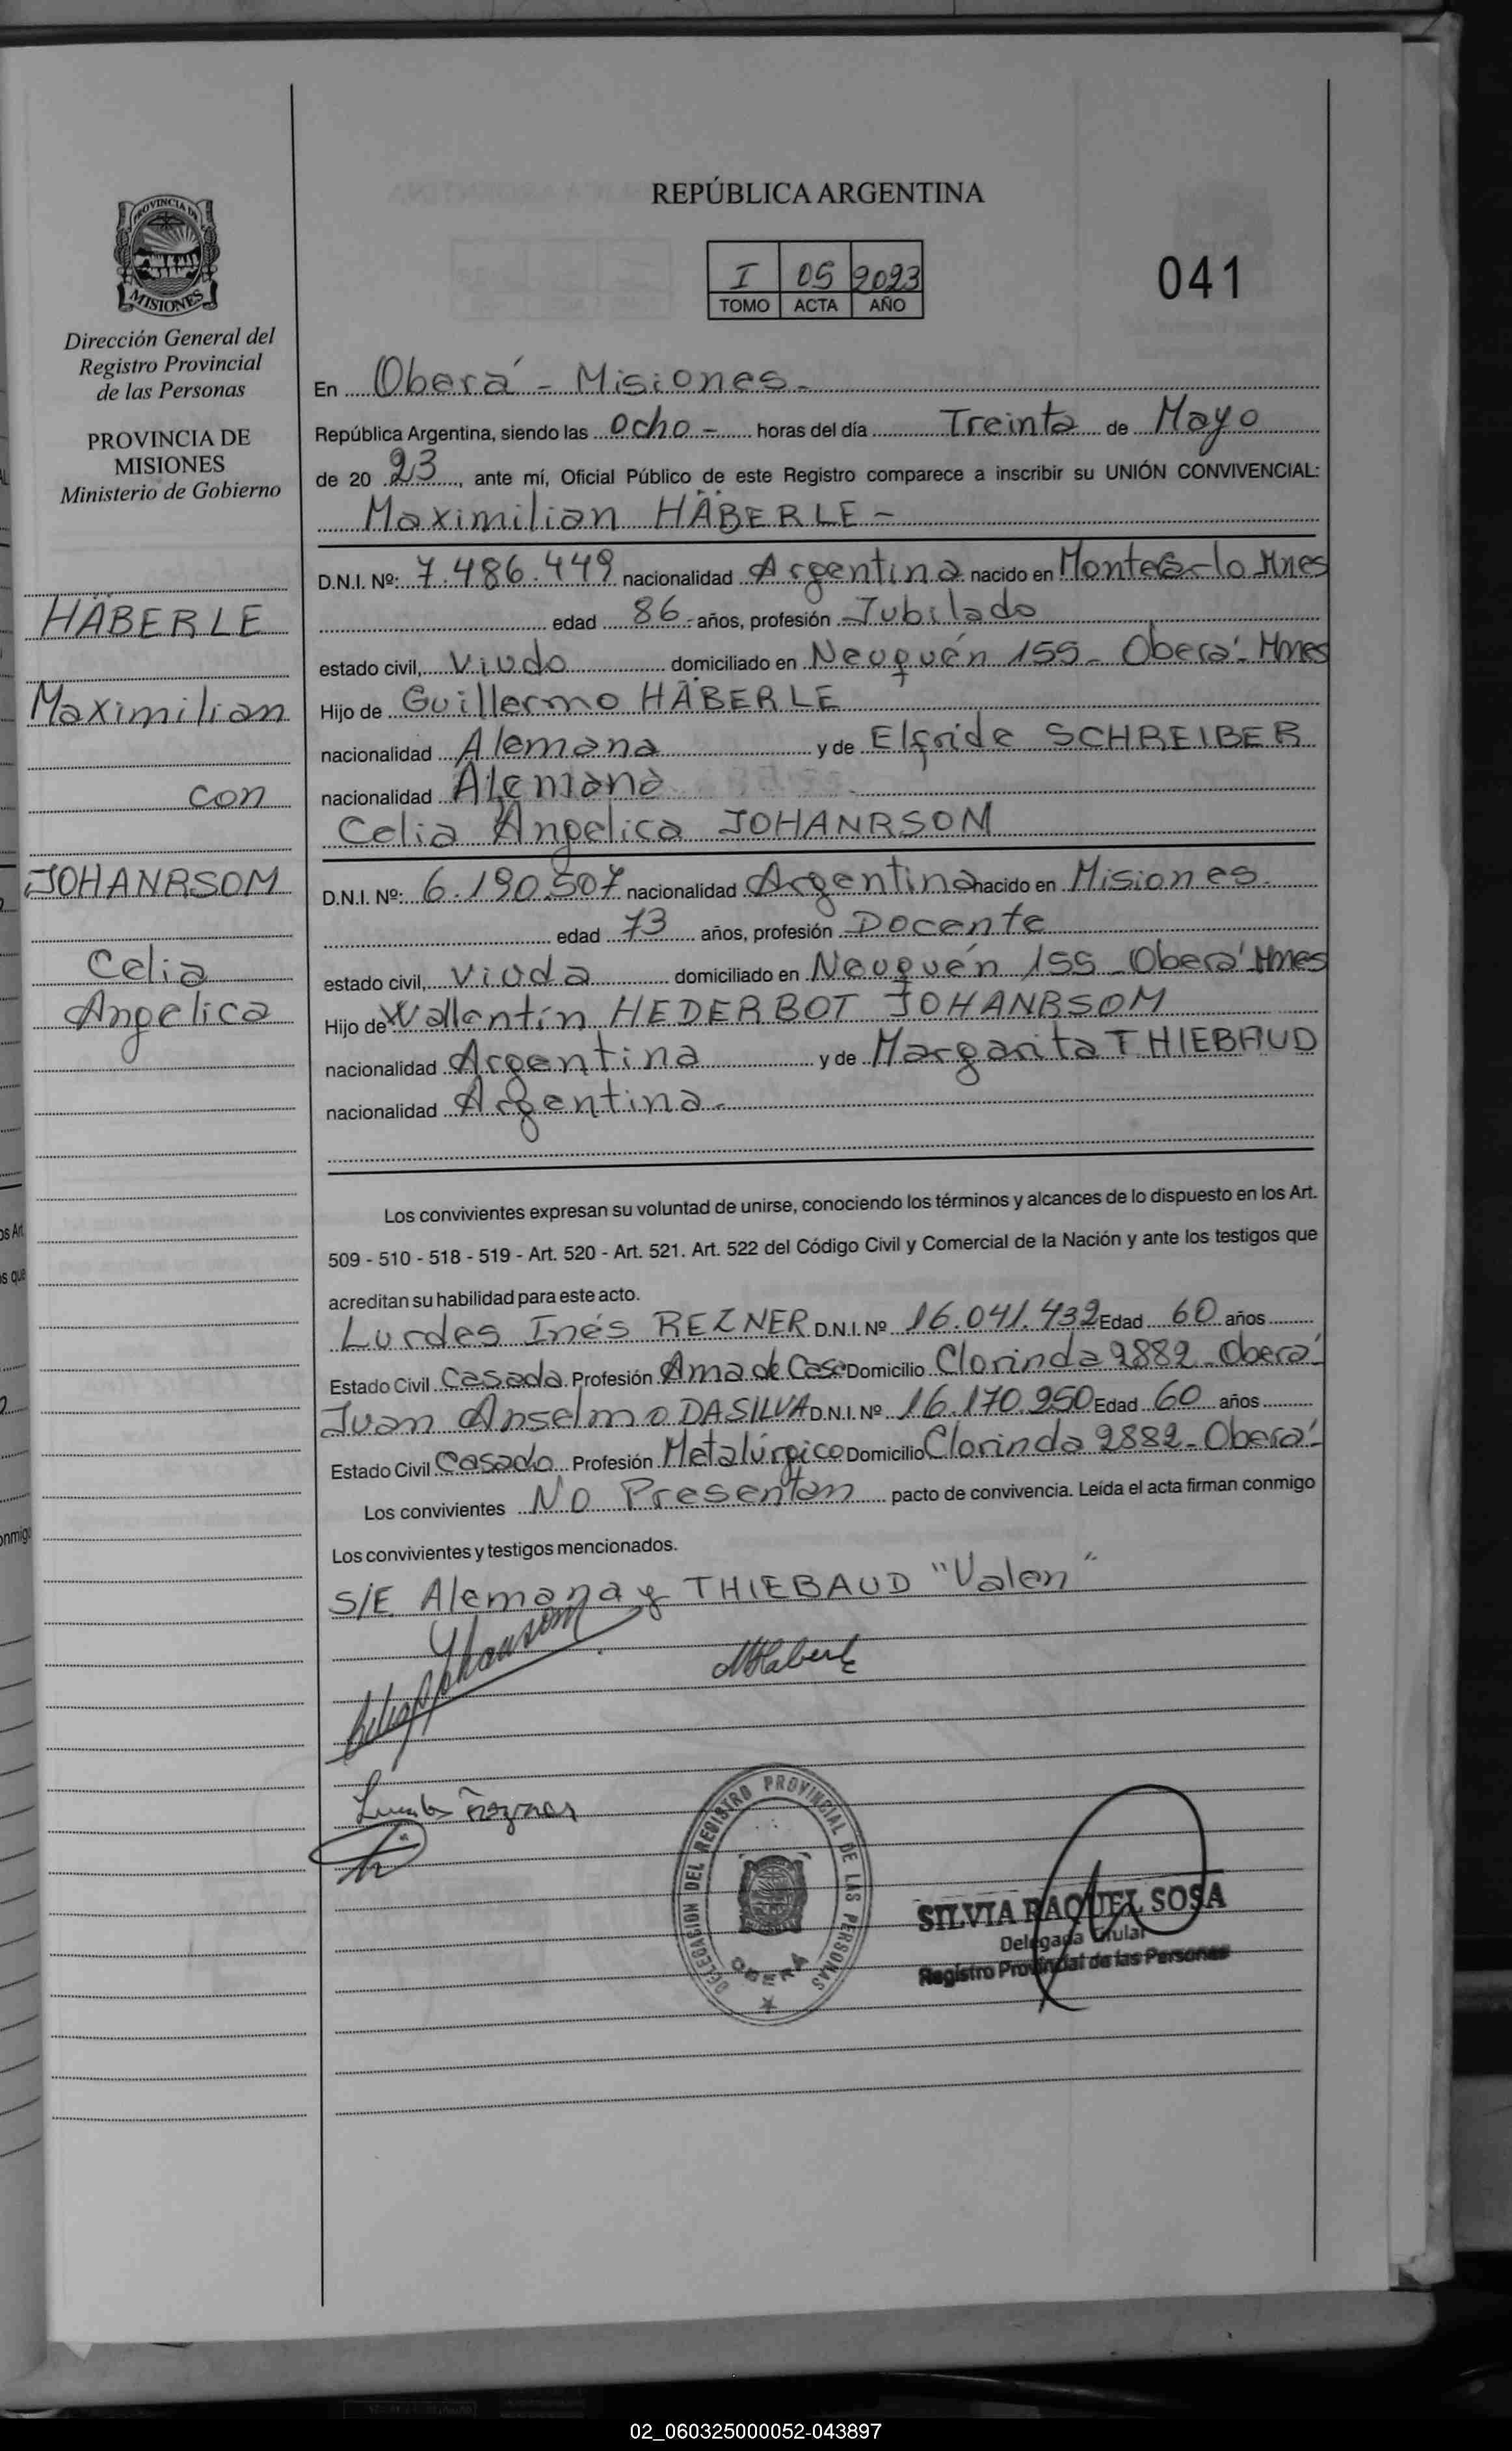 REPÚBLICA ARGENTINA
I 05 2023
TOMO ACTA AÑO
041
PROVINCIA DE
MISIONES
Dirección General del
Registro Provincial
de las Personas
PROVINCIA DE
MISIONES
Ministerio de Gobierno
HÄBERLE
Maximilian
con
JOHANRSOM
Celia
Angelica
En Oberá - Misiones -
República Argentina, siendo las ocho - horas del día Treinta de Mayo
de 20 23, ante mí, Oficial Público de este Registro comparece a inscribir su UNIÓN CONVIVENCIAL:
Maximilian HÄBERLE -
D.N.I. Nº: 7.486.449 nacionalidad Argentina nacido en Montecarlo Mnes
edad 86 - años, profesión Jubilado
estado civil, Viudo domiciliado en Neuquén 155 - Oberá - Mnes
Hijo de Guillermo HÄBERLE
nacionalidad Alemana y de Elfride SCHREIBER
nacionalidad Alemana
Celia Angelica JOHANRSOM
D.N.I. Nº: 6.190.507 nacionalidad Argentina nacido en Misiones
edad 73 años, profesión Docente
estado civil, Viuda domiciliado en Neuquén 155 - Oberá Mnes
Hijo de Wallentín HEDERBOT JOHANRSOM
nacionalidad Argentina y de Margarita THIEBAUD
nacionalidad Argentina -
Los convivientes expresan su voluntad de unirse, conociendo los términos y alcances de lo dispuesto en los Art.
509 - 510 - 518 - 519 - Art. 520 - Art. 521. Art. 522 del Código Civil y Comercial de la Nación y ante los testigos que
acreditan su habilidad para este acto.
Lurdes Inés REZNER D.N.I. Nº 16.041.432 Edad 60 años
Estado Civil Casada Profesión Ama de Casa Domicilio Clorinda 2882 - Oberá -
Juan Anselmo DASILVA D.N.I. Nº 16.170.250 Edad 60 años
Estado Civil Casado Profesión Metalúrgico Domicilio Clorinda 2882 - Oberá -
Los convivientes No Presentan pacto de convivencia. Leída el acta firman conmigo
Los convivientes y testigos mencionados.
S/E Alemana y THIEBAUD "Valen"
MHaberle
DELEGACION DEL REGISTRO PROVINCIAL DE LAS PERSONAS
OBERA
SILVIA RAQUEL SOSA
Delegada Titular
Registro Provincial de las Personas
02_060325000052-043897